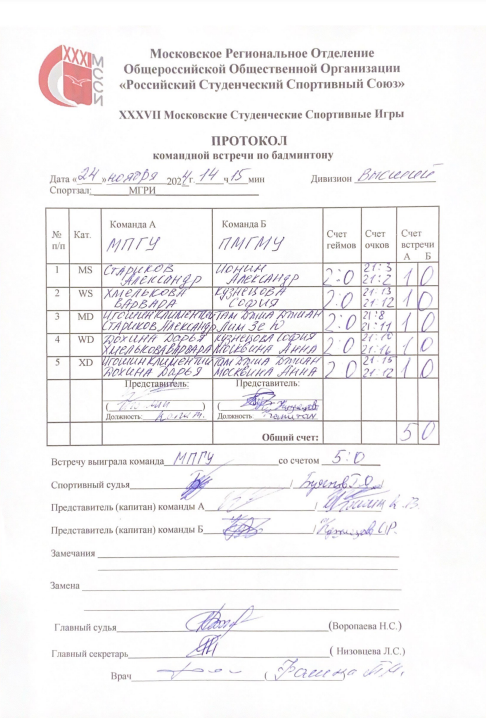 XXXVI МССИ
Московское Региональное Отделение
Общероссийской Общественной Организации
«Российский Студенческий Спортивный Союз»
XXXVII Московские Студенческие Спортивные Игры
ПРОТОКОЛ
командной встречи по бадминтону
Дата «24» ноября 2024 г. 14 ч 15 мин Дивизион Высший
Спортзал: МГРИ
№ п/п Кат. Команда А МПГУ Команда Б ПМГМУ Счет геймов Счет очков Счет встречи А Б
1 MS Стариков Александр Ионин Александр 2:0 21:3 21:2 1 0
2 WS Хмелькова Варвара Кузнецова София 2:0 21:13 21:12 1 0
3 MD Игошин Климентий Стариков Александр Там Даша Лим Зе Ю 2:0 21:8 21:11 1 0
4 WD Дохина Дарья Хмелькова Варвара Кузнецова София Москвина Анна 2:0 21:10 21:16 1 0
5 XD Игошин Климентий Дохина Дарья Там Даша Москвина Анна 2:0 21:15 21:12 1 0
Представитель: Представитель:
Должность: Должность: капитан
Общий счет: 5 0
Встречу выиграла команда МПГУ со счетом 5:0
Спортивный судья
Представитель (капитан) команды А
Представитель (капитан) команды Б
Замечания
Замена
Главный судья (Воропаева Н.С.)
Главный секретарь ( Низовцева Л.С.)
Врач